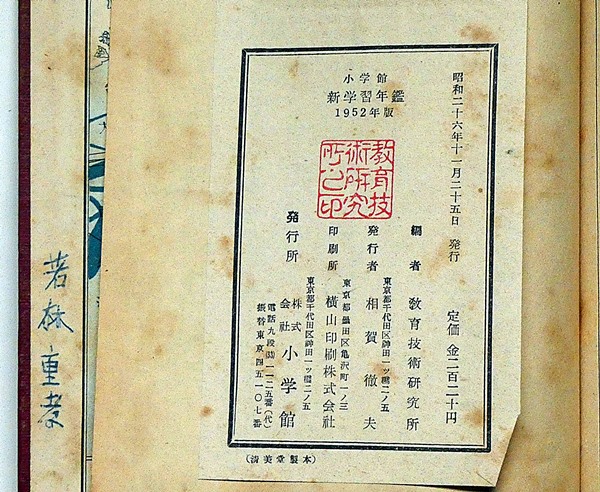 小学館
新学習年鑑
1952年版
昭和二十六年十一月二十五日 発行
定価 金二百二十円
教育技
術研究
所之印
編者 教育技術研究所
東京都千代田区神田一ツ橋二ノ五
発行者 相賀徹夫
東京都墨田区亀沢町一ノ三
印刷所 横山印刷株式会社
東京都千代田区神田一ツ橋二ノ五
発行所 株式会社 小学館
電話九段㉝一一二五番(代)
振替東京四五一〇七番
(清美堂製本)
若林重孝